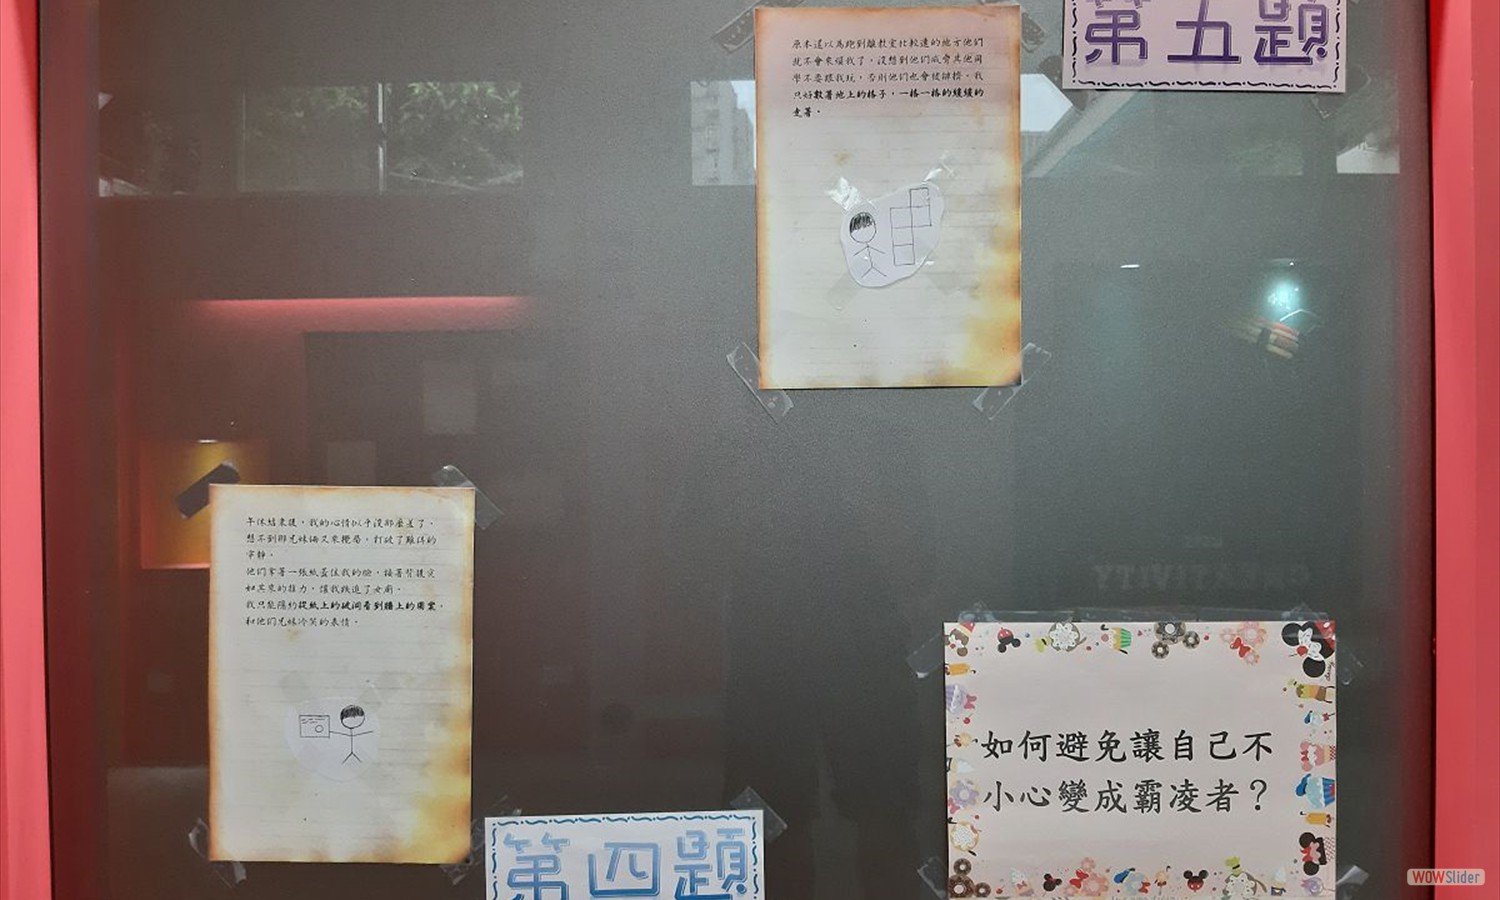 第五題
原本還以為跑到離教室比較遠的地方他們
就不會來煩我了，沒想到他們威脅其他同
學不要跟我玩，否則他們也會被排擠，我
只好數著地上的格子，一格一格的緩緩的
走著。
午休結束後，我的心情似乎沒那麼差了，
想不到那兄妹倆又來攪局，打破了難得的
寧靜。
他們拿著一張紙蓋住我的臉，接著背後突
如其來的推力，讓我跌進了女廁。
我只能隱約從紙上的破洞看到牆上的圖案，
和他們兄妹冷笑的表情。
第四題
如何避免讓自己不
小心變成霸凌者？
CREATIVITY
WOWSlider